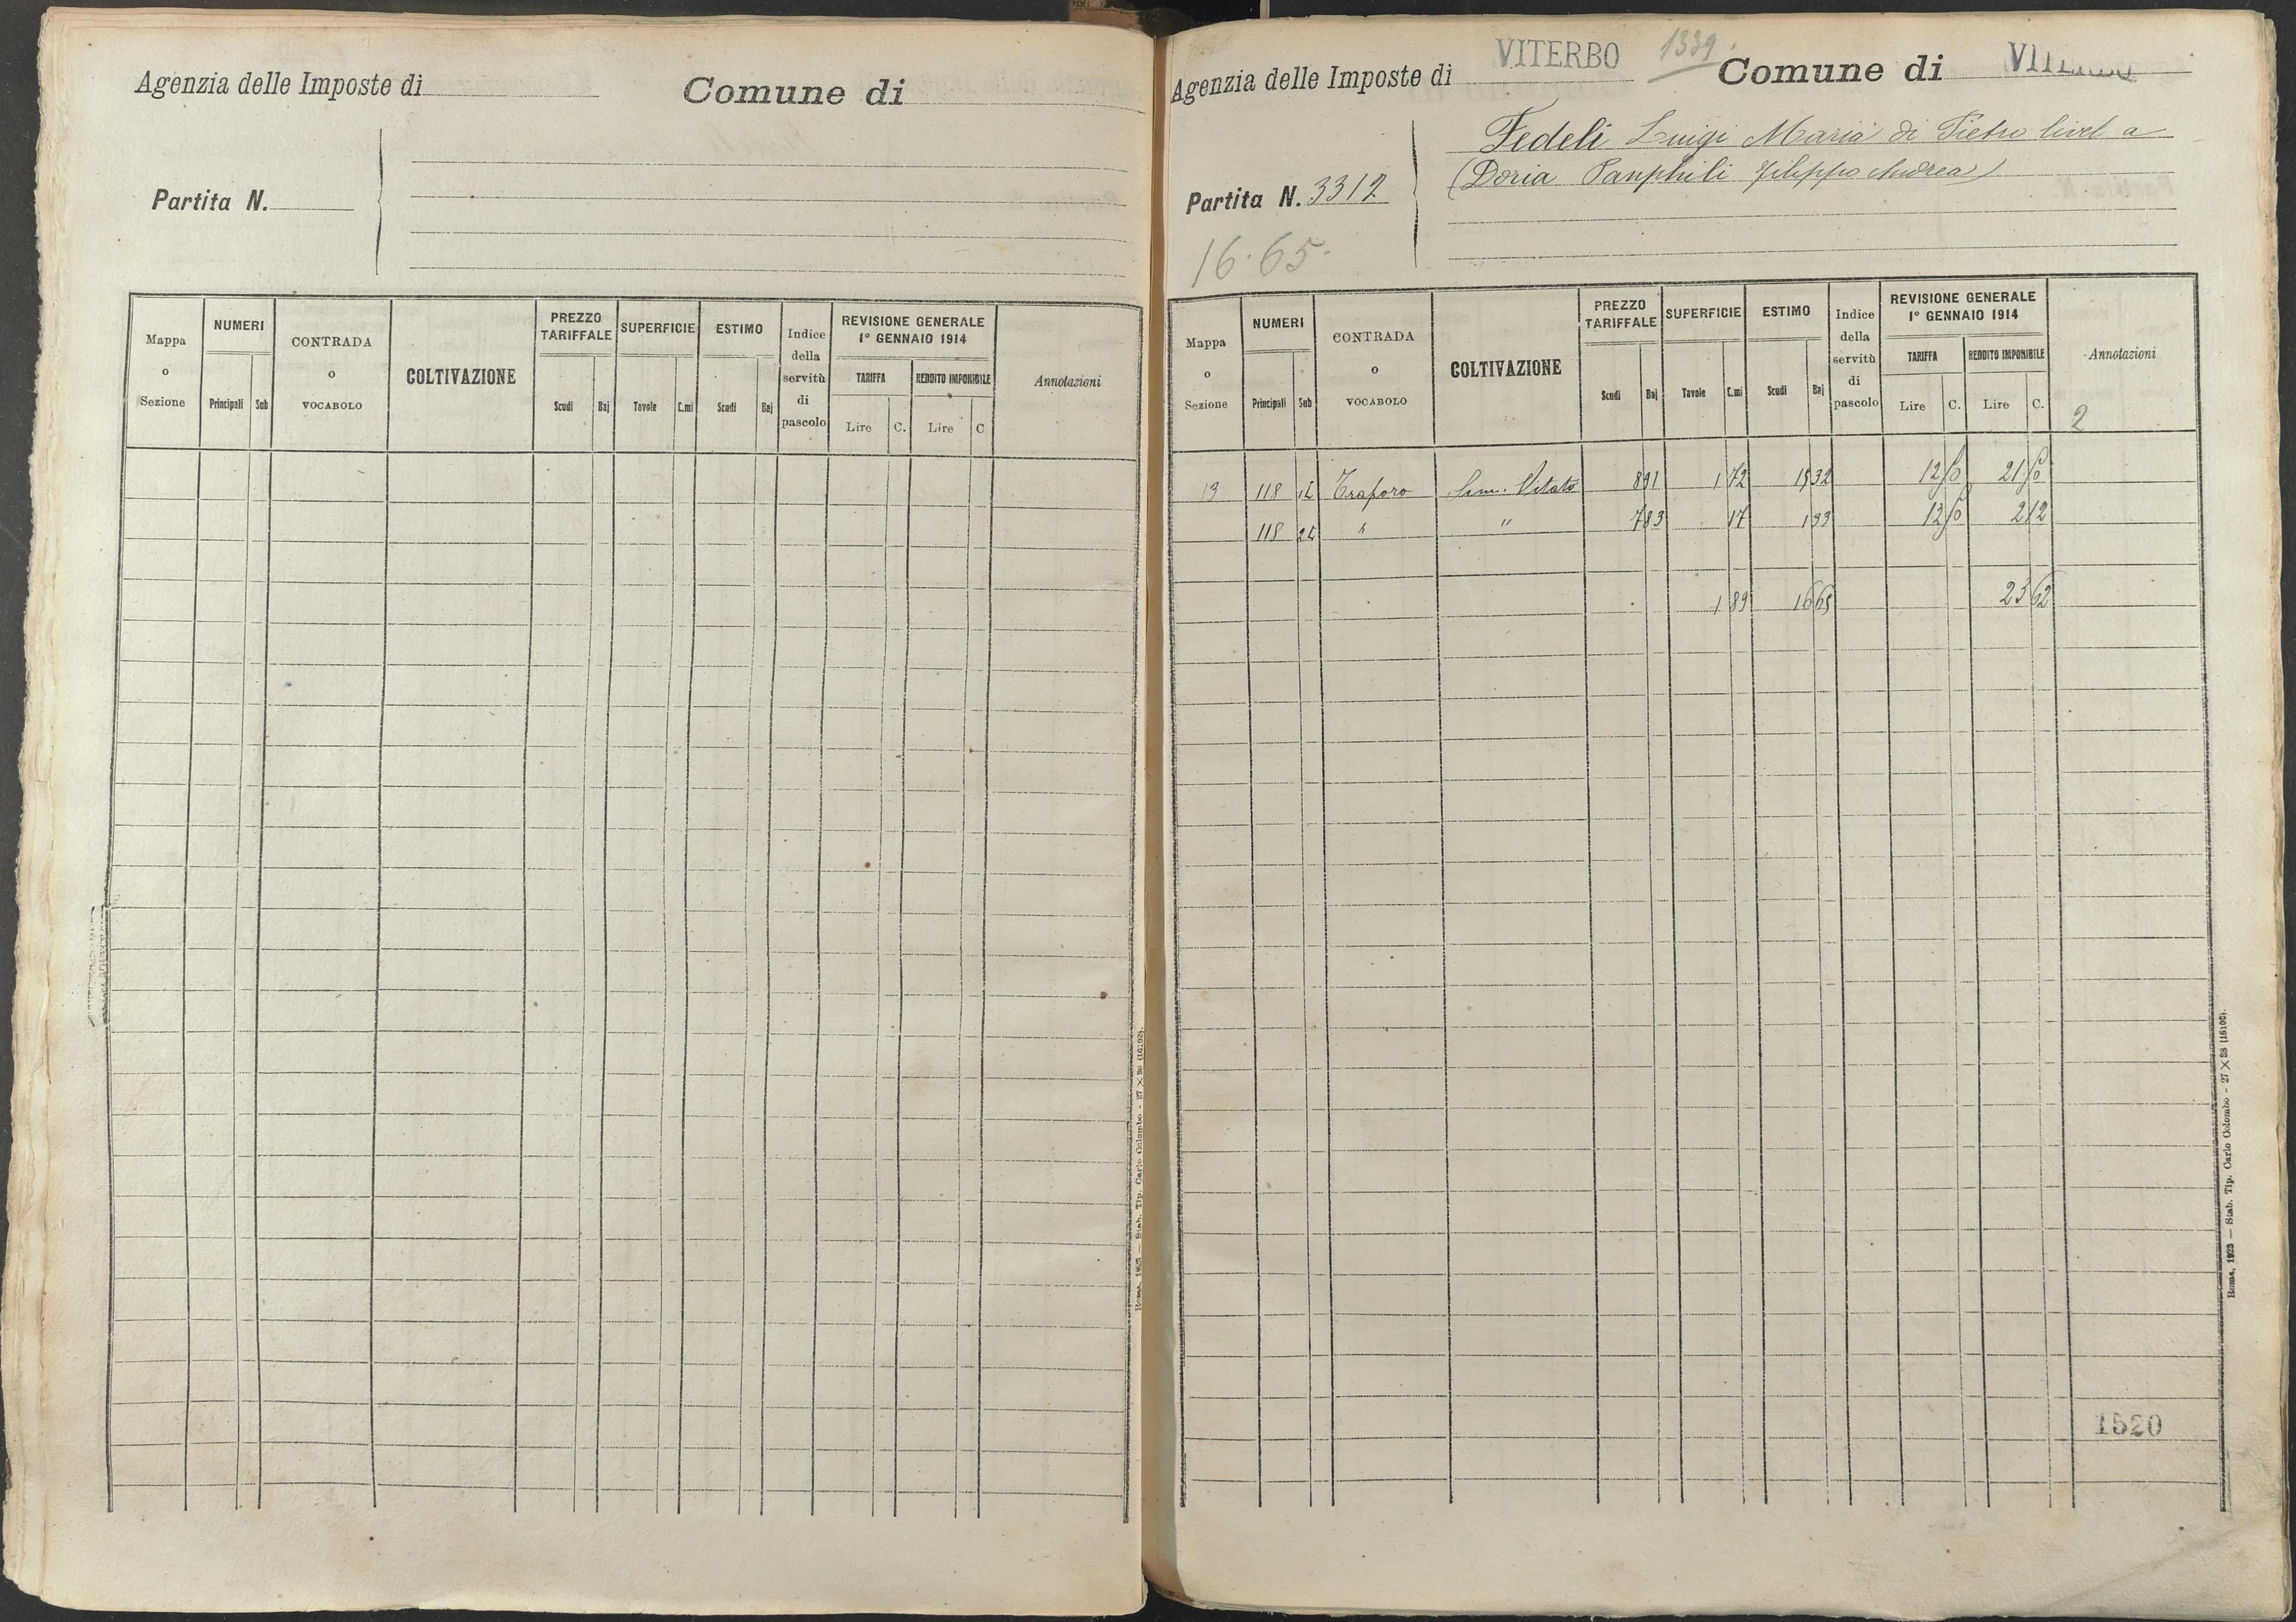 Agenzia delle Imposte di
Comune di
Partita N.
Mappa o Sezione
NUMERI
Principali Sub
CONTRADA o VOCABOLO
COLTIVAZIONE
PREZZO TARIFFALE
Scudi Baj
SUPERFICIE
Tavole C.mi
ESTIMO
Scudi Baj
Indice della servitù di pascolo
REVISIONE GENERALE 1º GENNAIO 1914
TARIFFA
Lire C.
REDDITO IMPONIBILE
Lire C
Annotazioni
Roma, 1923 — Stab. Tip. Carlo Colombo - 27 X 38 (16100).
Agenzia delle Imposte di VITERBO
1339.
Comune di VITERBO
Fedeli Luigi Maria di Pietro livel a
(Doria Panphili Filippo Andrea)
Partita N. 3312
16.65.
Mappa o Sezione
NUMERI
Principali Sub
CONTRADA o VOCABOLO
COLTIVAZIONE
PREZZO TARIFFALE
Scudi Baj
SUPERFICIE
Tavole C.mi
ESTIMO
Scudi Baj
Indice della servitù di pascolo
REVISIONE GENERALE 1º GENNAIO 1914
TARIFFA
Lire C.
REDDITO IMPONIBILE
Lire C.
Annotazioni
2
13 118 Traforo Sem. Vitato 8 91 1 72 15 32 12 50 21 50
118 " " 7 83 17 1 33 12 50 2 12
1 89 16 65 23 62
1520
Roma, 1923 — Stab. Tip. Carlo Colombo - 27 X 38 (16100).